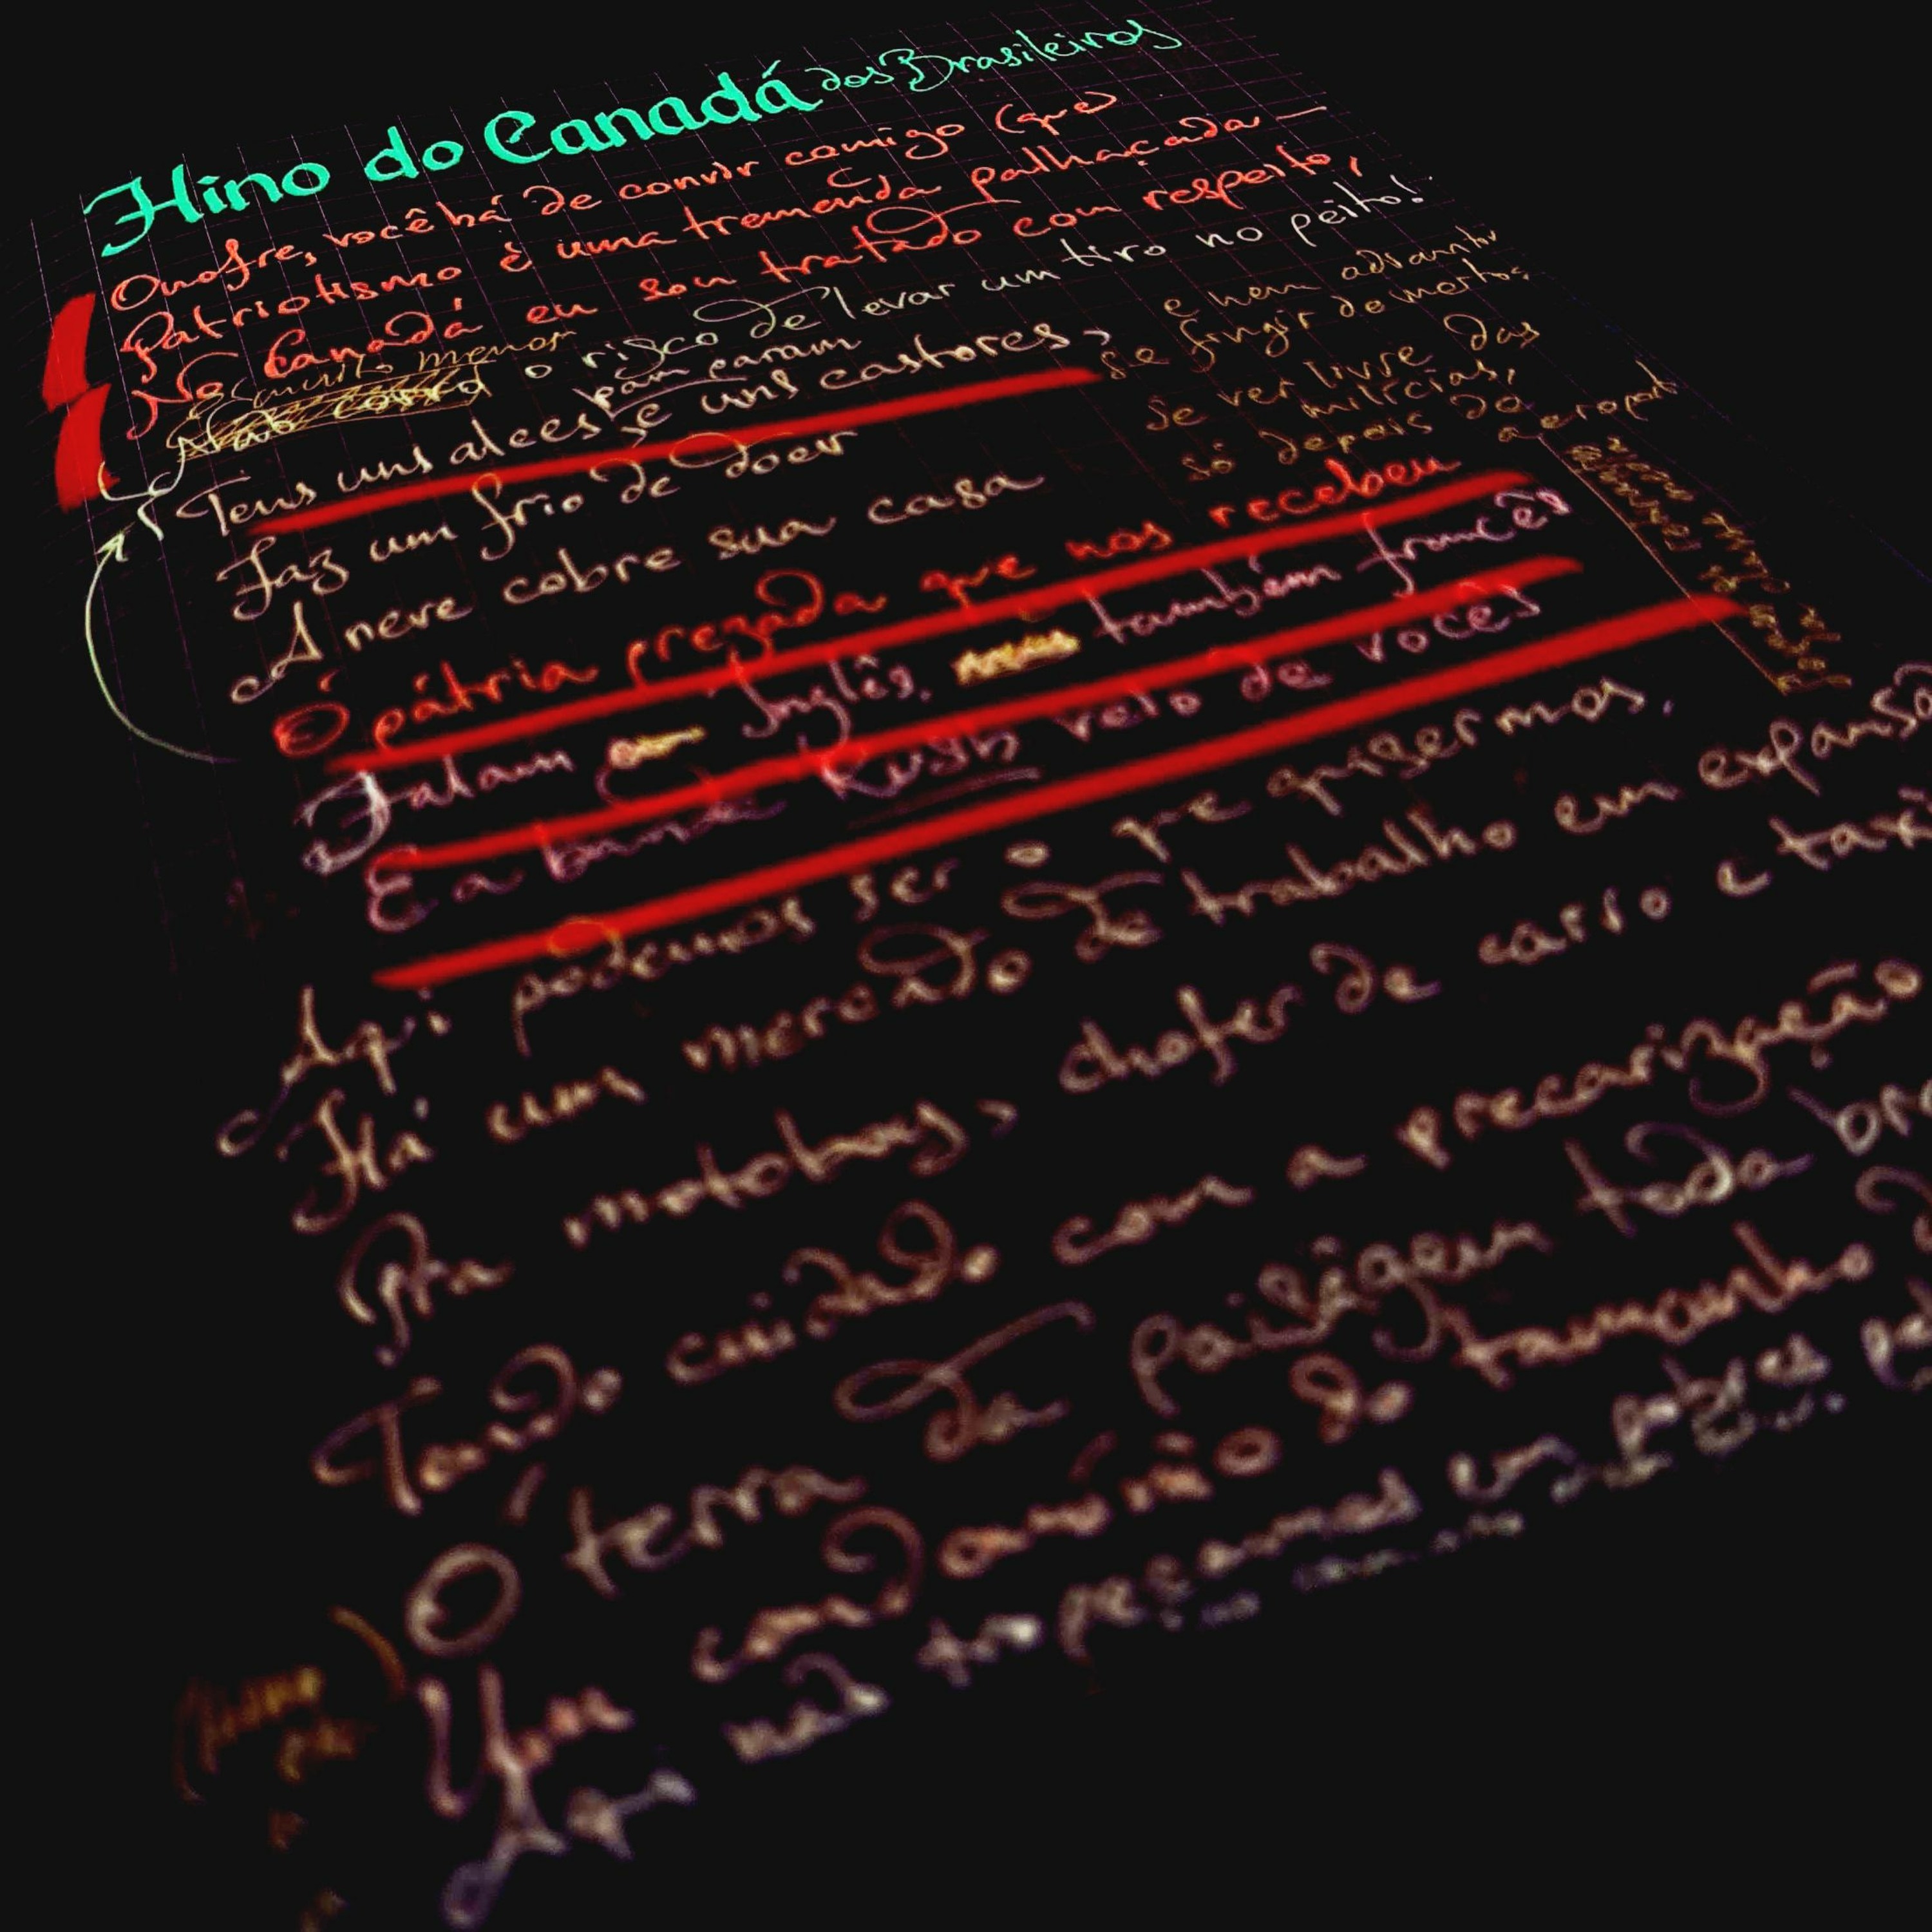 Hino do Canadá dos Brasileiros
Onofre, você há de convir comigo (que)
Patriotismo é uma tremenda palhaçada —
No Canadá eu sou tratado com respeito,
É muito menor o risco de levar um tiro no peito!
Não corro
Tens uns alces e uns castores,
pam param
e nem adianta
se fingir de morto:
se ver livre das
milícias,
só depois do
aeroporto
Faz um frio de doer
A neve cobre sua casa
Ó pátria prezada que nos recebeu
Falam o Inglês, mas também francês
E a banda Rush veio de vocês
Aqui podemos ser o que quisermos,
Há um mercado de trabalho em expansão
Pra motoboy, chofer de carro e taxi
Tendo cuidado com a precarização
Ó terra da paisagem toda
Um condomínio do tamanho
Aqui não tropeçamos em pobres